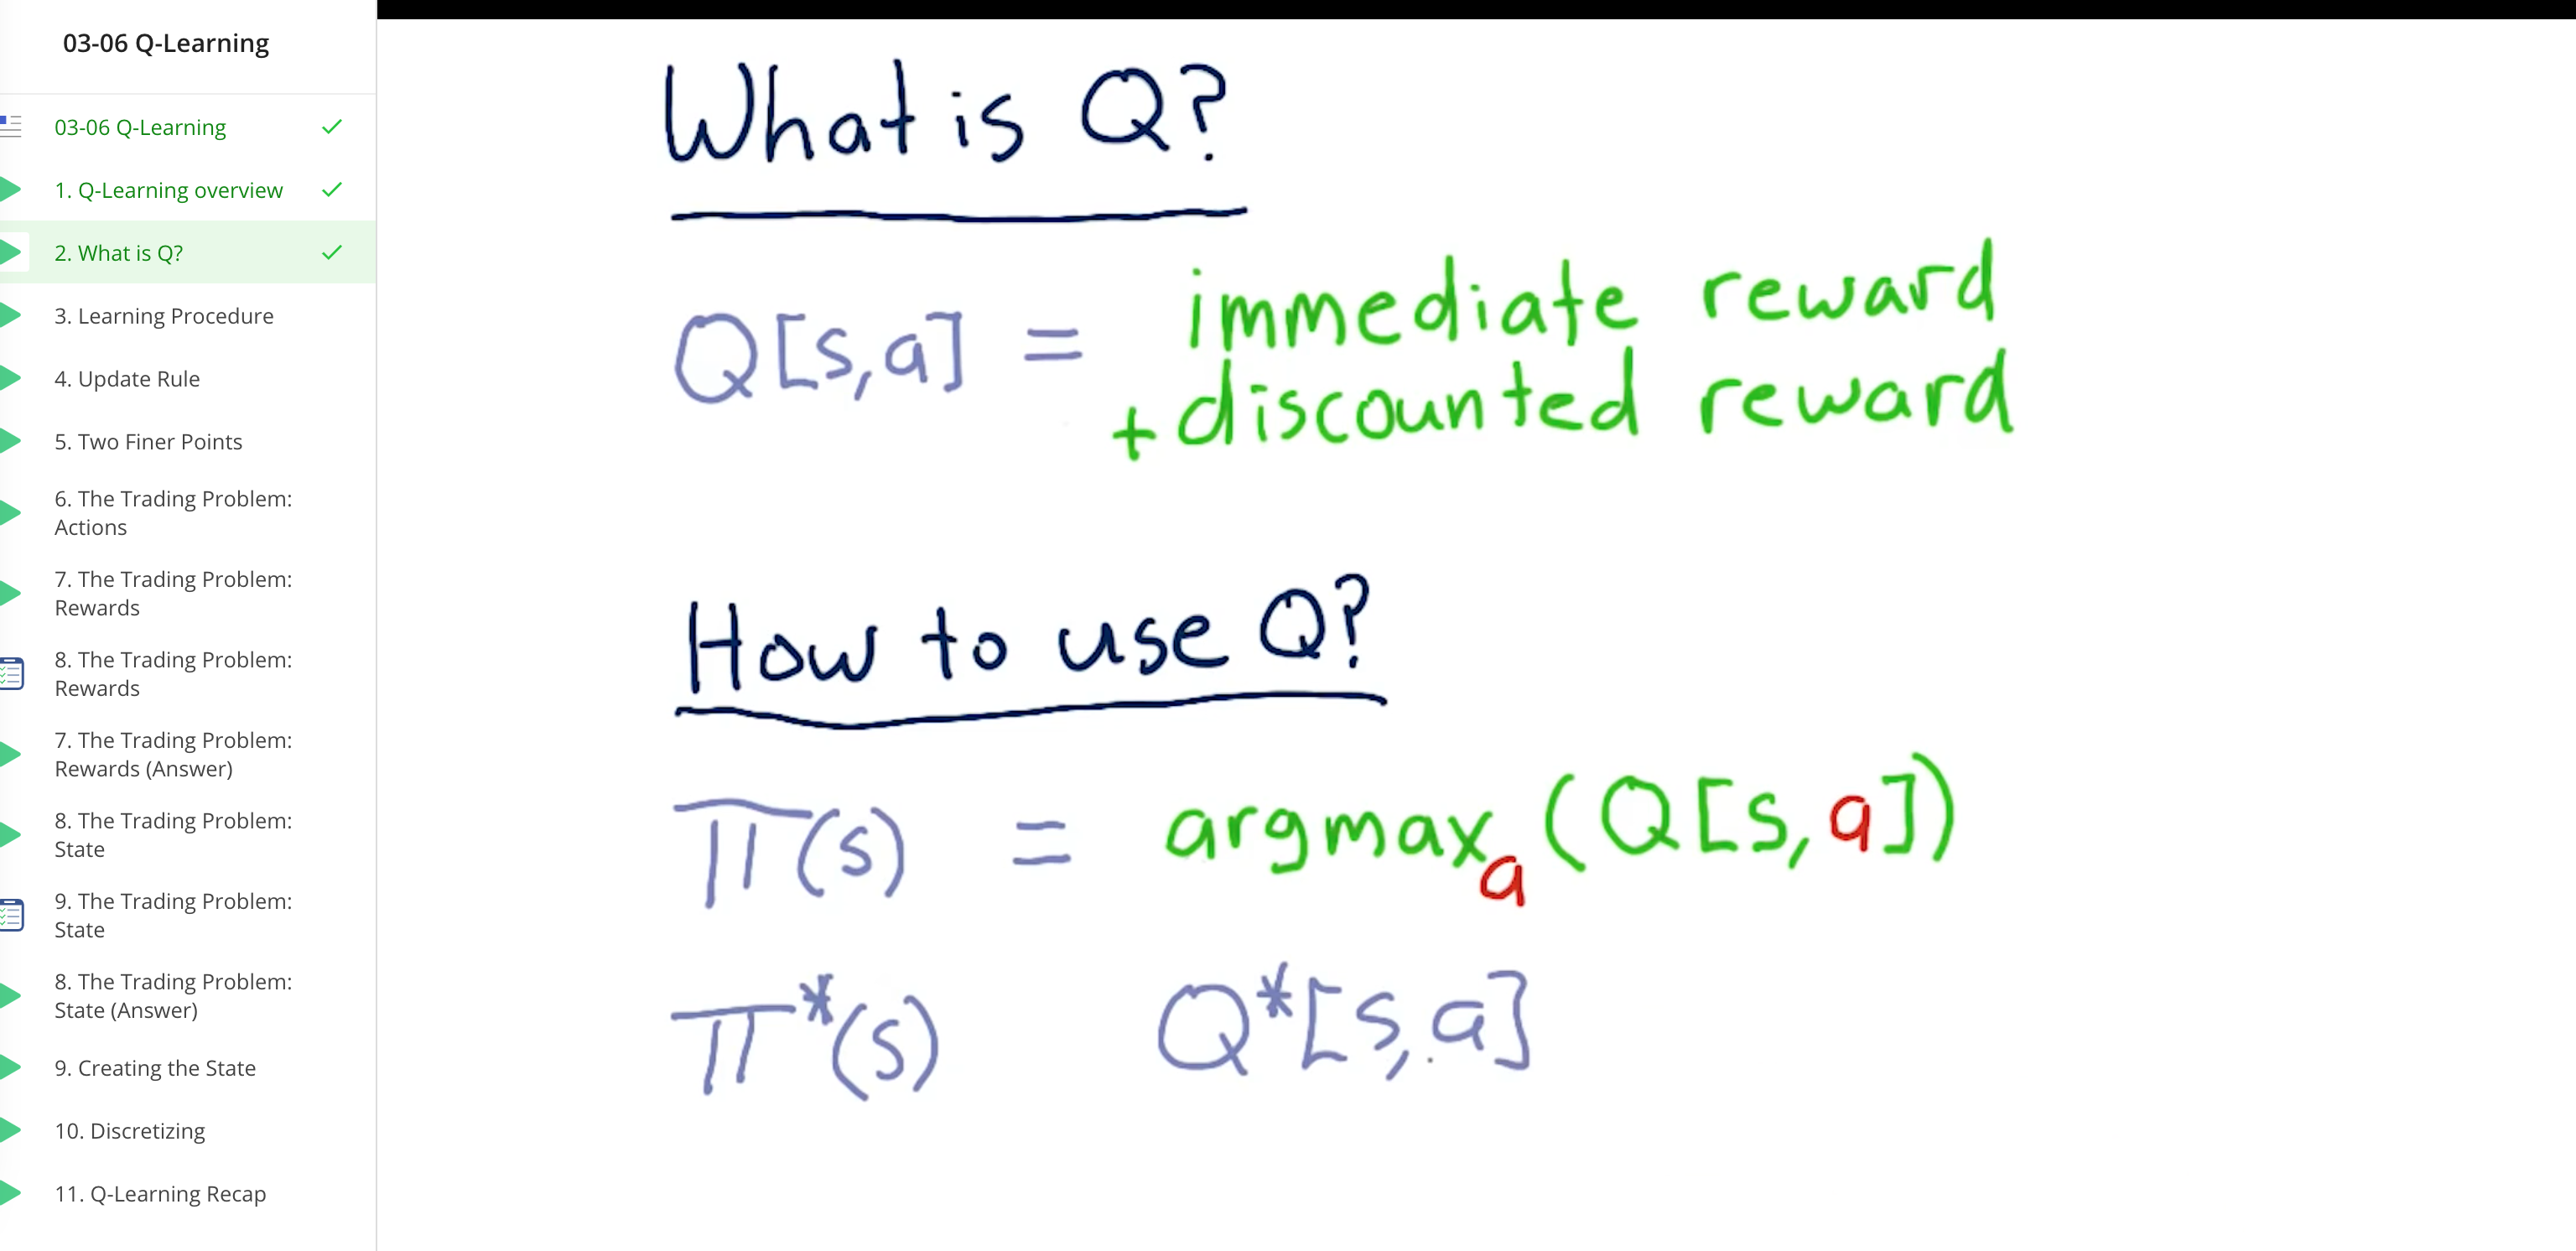 03-06 Q-Learning
03-06 Q-Learning
1. Q-Learning overview
2. What is Q?
3. Learning Procedure
4. Update Rule
5. Two Finer Points
6. The Trading Problem:
Actions
7. The Trading Problem:
Rewards
8. The Trading Problem:
Rewards
7. The Trading Problem:
Rewards (Answer)
8. The Trading Problem:
State
9. The Trading Problem:
State
8. The Trading Problem:
State (Answer)
9. Creating the State
10. Discretizing
11. Q-Learning Recap
What is Q?
Q[s,a] = immediate reward
+ discounted reward
How to use Q?
Π(s) = argmaxₐ(Q[s,a])
Π*(s) Q*[s,a]